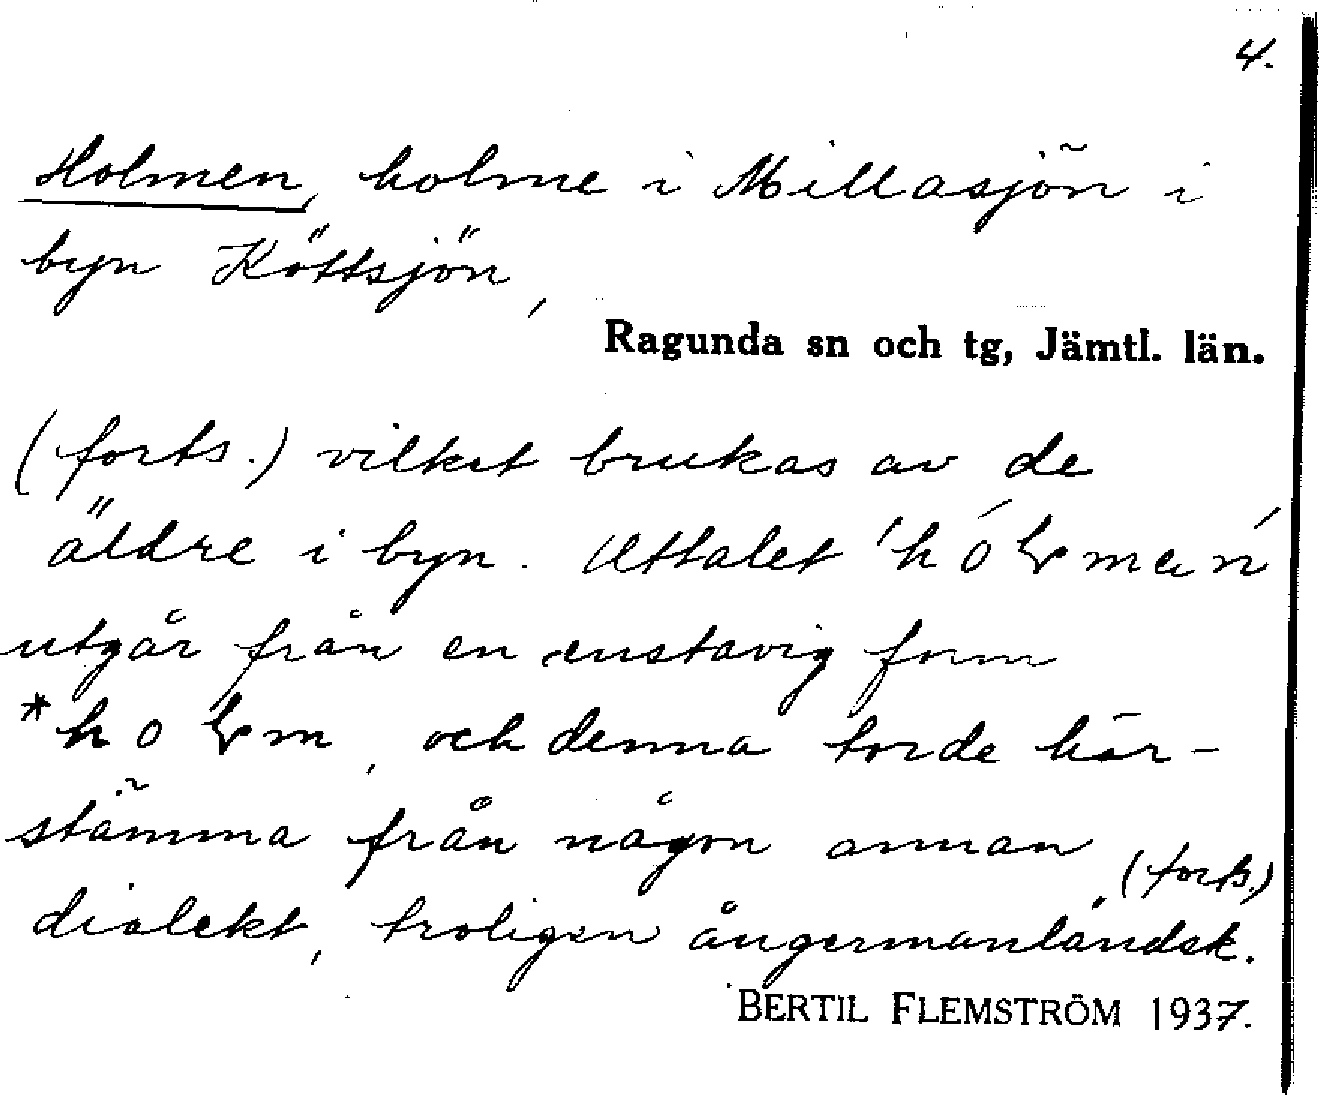 4.
Holmen, holme i Millasjön i
byn Köttsjön,
Ragunda sn och tg, Jämtl. län.
(forts.) vilket brukas av de
äldre i byn. Uttalet
utgår från en enstavig form
och denna torde här-
stämma från någon annan
(forts.)
dialekt, troligen ångermanländsk.
BERTIL FLEMSTRÖM 1937.